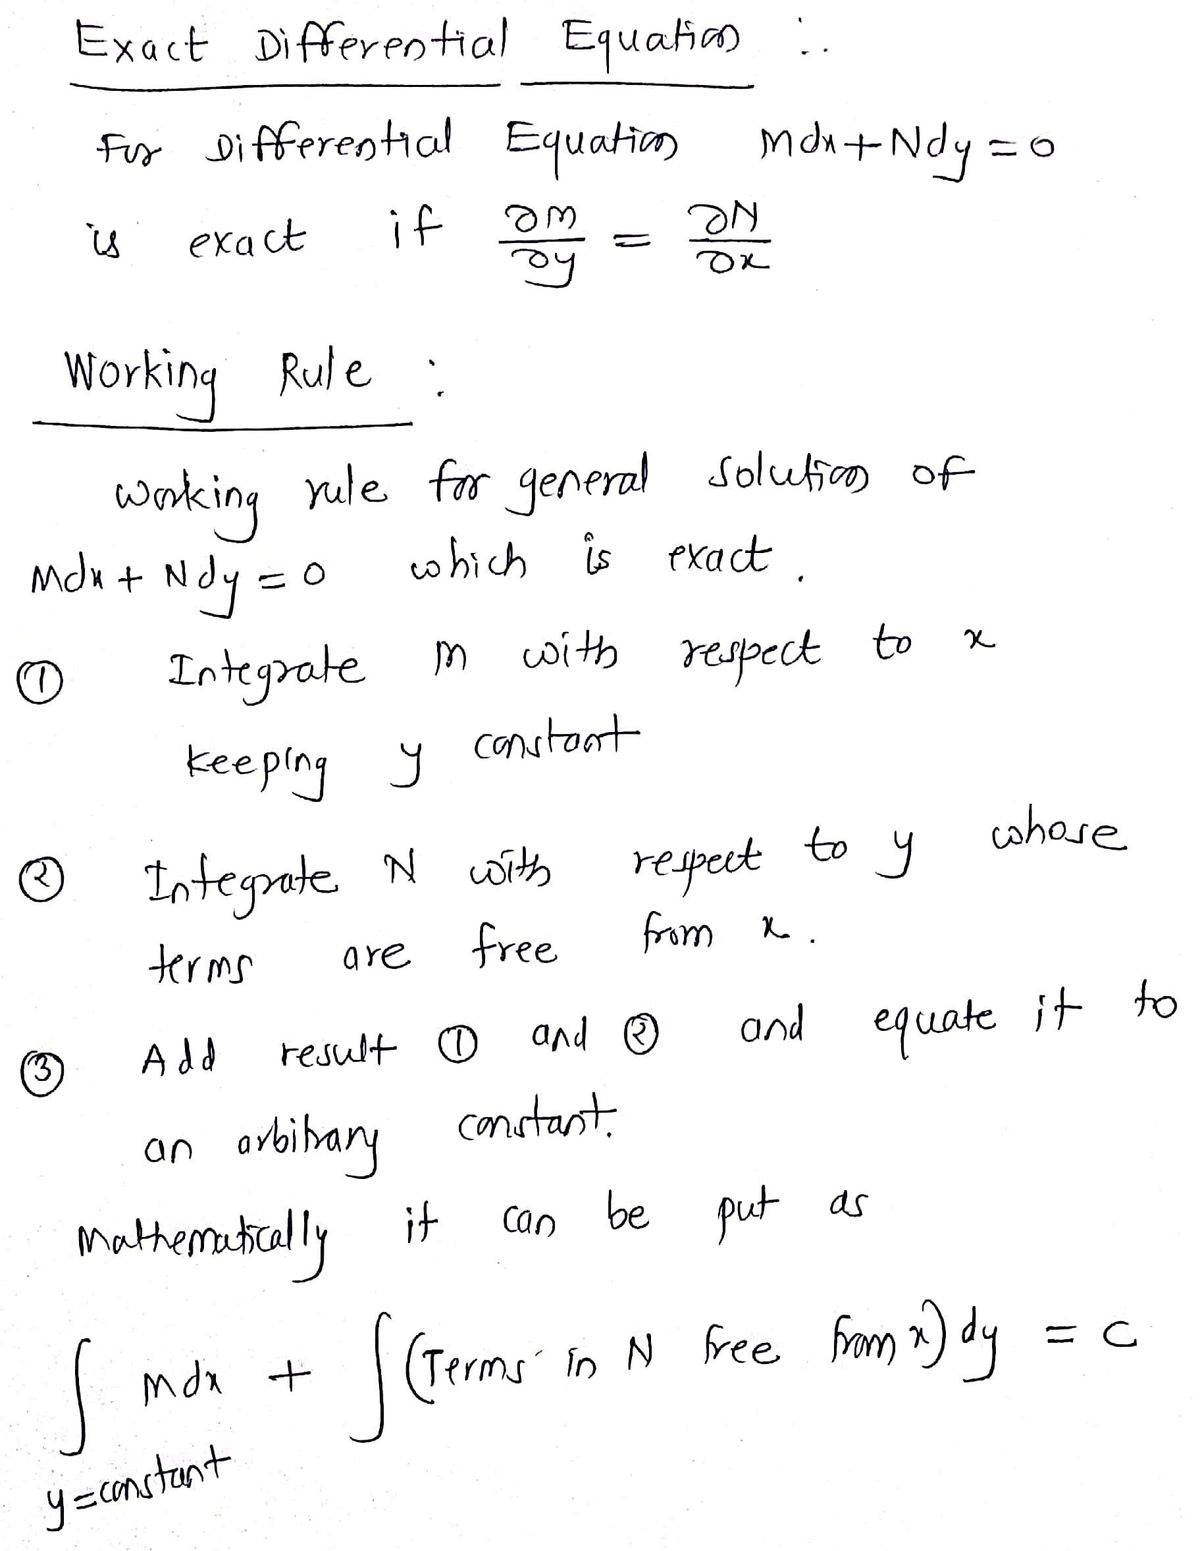 Exact Differential Equation :.
For Differential Equation Mdx + Ndy = 0
is exact if ∂M/∂y = ∂N/∂x
Working Rule :
working rule for general solution of
Mdx + Ndy = 0 which is exact.
① Integrate M with respect to x
keeping y constant
② Integrate N with respect to y whose
terms are free from x.
③ Add result ① and ② and equate it to
an arbitrary constant.
Mathematically it can be put as
∫ Mdx + ∫ (Terms in N free from x) dy = C
y=constant